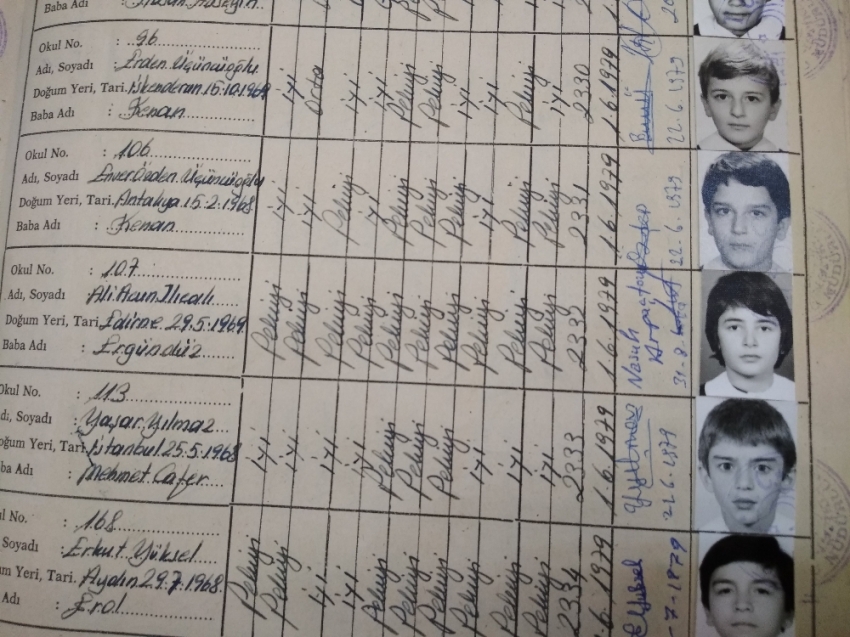 Baba Adı
Okul No. : 96
Adı, Soyadı : Erden Üçüncüoğlu
Doğum Yeri, Tari. İskenderun 15.10.1969
Baba Adı : Kenan
iyi Orta iyi iyi Pekiyi Pekiyi iyi iyi Pekiyi iyi 2330 1.6.1979
22.6.1979
Okul No. : 106
Adı, Soyadı Enver Özden Üçüncüoğlu
Doğum Yeri, Tari. Antakya 15.2.1968
Baba Adı : Kenan
iyi iyi Pekiyi iyi Pekiyi Pekiyi Pekiyi iyi Pekiyi Pekiyi 2331 1.6.1979
22.6.1979
Okul No. : 107
Adı, Soyadı Ali Acun Ilıcalı
Doğum Yeri, Tari. Edirne 29.5.1969
Baba Adı : Ergündüz
Pekiyi Pekiyi Pekiyi Pekiyi Pekiyi Pekiyi Pekiyi Pekiyi Pekiyi Pekiyi 2332 1.6.1979
Nasuh
Okul No. : 113
dı, Soyadı : Yaşar Yılmaz
oğum Yeri, Tari. İstanbul 25.5.1968
ba Adı : Mehmet Cafer
iyi iyi iyi iyi Pekiyi Pekiyi Pekiyi iyi iyi iyi 2333 1.6.1979
l No. : 168
Soyadı : Erkut Yüksel
m Yeri, Tari. Aydın 29.7.1968
Adı : Erol
Pekiyi Pekiyi iyi iyi Pekiyi Pekiyi Pekiyi Pekiyi Pekiyi Pekiyi 2334 .6.1979
-7-1979